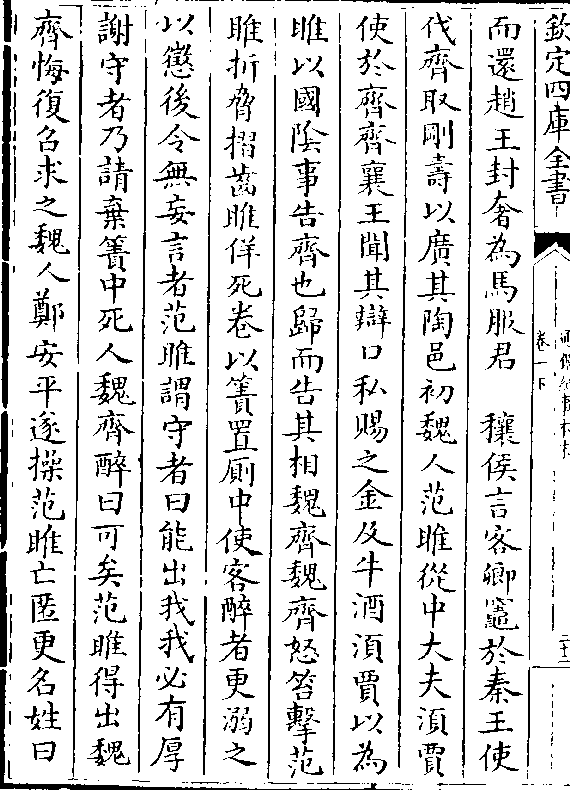 欽定四庫全書
卷一下
而還趙王封奢為馬服君　穰侯言客卿竈於秦王使
伐齊取剛壽以廣其陶邑初魏人范睢從中大夫湏賈
使於齊齊襄王聞其辯口私賜之金及牛酒湏賈以為
睢以國陰事告齊也歸而告其相魏齊魏齊怒笞擊范
睢折脅摺齒睢佯死卷以簀置厠中使客醉者更溺之
以懲後令無妄言者范睢謂守者曰能出我我必有厚
謝守者乃請棄簀中死人魏齊醉曰可矣范睢得出魏
齊悔復召求之魏人鄭安平遂操范睢亡匿更名姓曰